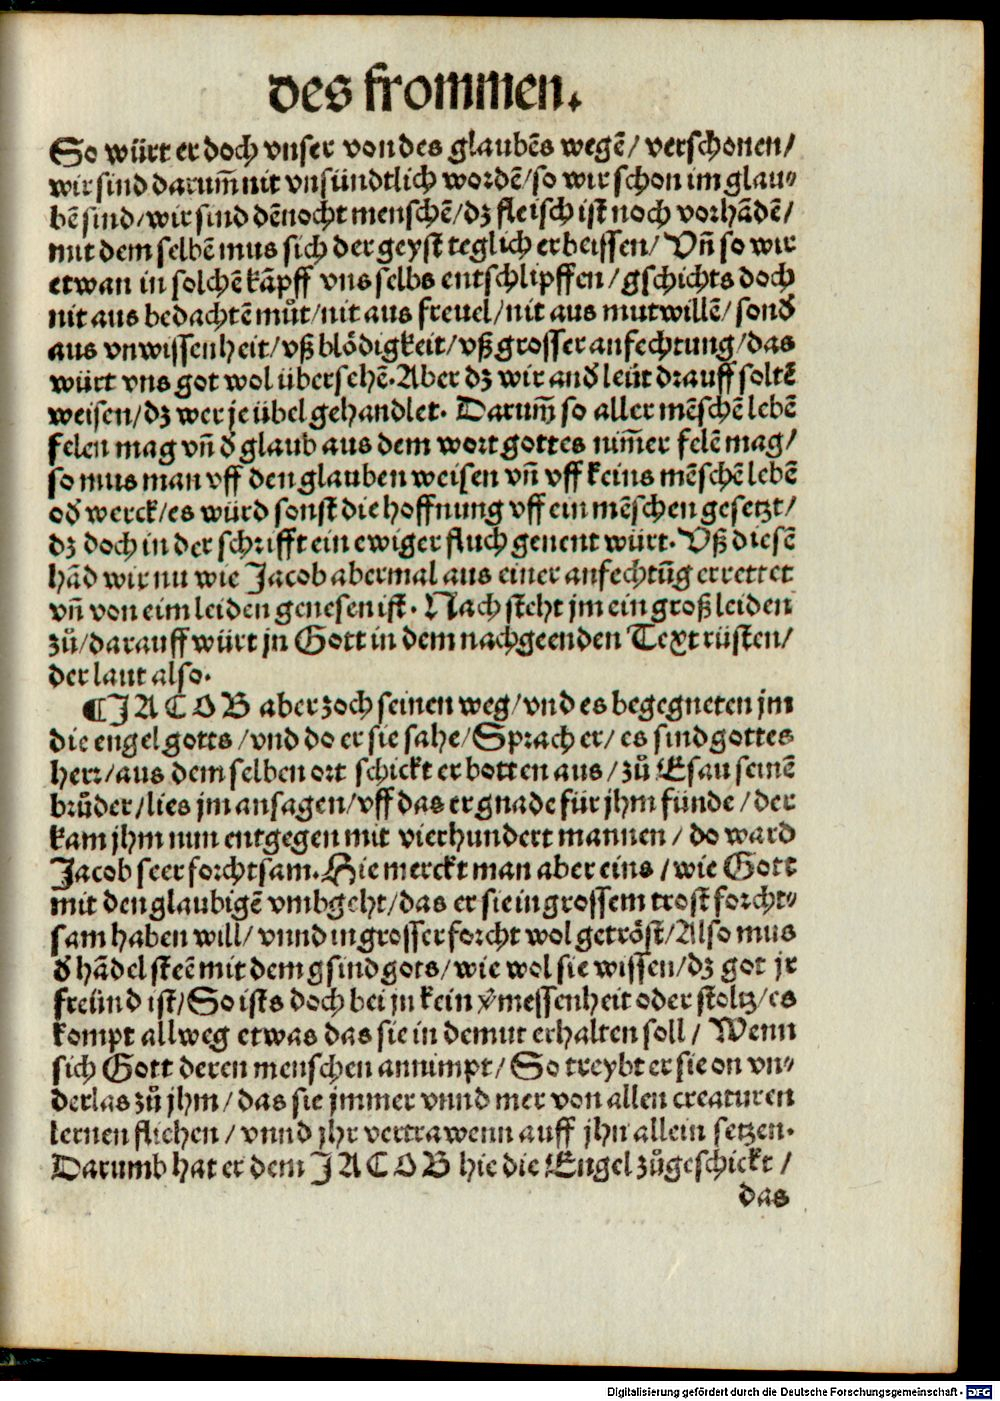 des frommen.
So würt er doch vnser von des glaubēs wegē/ verschonen/
wir sind darum̄ nit vnsündtlich wordē/ so wir schon im glau⸗
bē sind/ wir sind dēnocht menschē/ dz fleisch ist noch vorhādē/
mit dem selbē mus sich der geyst teglich erbeissen/ Vn̄ so wir
etwan in solchē kāpff vns selbs entschlipffen/ gschichts doch
nit aus bedachtē můt/ nit aus freuel/ nit aus mutwillē/ sonđ
aus vnwissenheit/ vß blödigkeit/ vß grosser anfechtung/ das
würt vns got wol übersehē. Aber dz wir anđ leüt drauff soltē
weisen/ dz wer je übel gehandlet. Darum̄ so aller mēschē lebē
felen mag vn̄ đ glaub aus dem wort gottes nim̄er felē mag/
so mus man vff den glauben weisen vn̄ vff keins mēschē lebē
ođ werck/ es würd sonst die hoffnung vff ein mēschen gesetzt/
dz doch in der schrifft ein ewiger fluch genent würt. Vß diesē
hād wir nu wie Jacob abermal aus einer anfechtūg errettet
vn̄ von eim leiden genesen ist. Nach steht jm ein groß leiden
zů/ darauff würt jn Gott in dem nachgeenden Text rüsten/
der laut also.
¶ JACOB aber zoch seinen weg/ vnd es begegneten jm
die engel gotts/ vnd do er sie sahe/ Sprach er/ es sind gottes
herr/ aus dem selben ort schickt er botten aus/ zů Esau seinē
brůder/ lies jm ansagen/ vff das er gnade für jhm fünde/ der
kam jhm nun entgegen mit vierhundert mannen/ do ward
Jacob seer forchtsam. Hie merckt man aber eins/ wie Gott
mit den glaubigē vmbgeht/ das er sie in grossem trost forcht⸗
sam haben will/ vnnd in grosser forcht wol getröst/ Also mus
đ hādel steē mit dem gsind gots/ wie wol sie wissen/ dz got jr
freünd ist/ So ists doch bei jn kein v̾messenheit oder stoltz/ es
kompt allweg etwas das sie in demut erhalten soll/ Wenn
sich Gott deren menschen annimpt/ So treybt er sie on vn⸗
derlas zů jhm/ das sie jmmer vnnd mer von allen creaturen
lernen fliehen/ vnnd jhr vertrawenn auff jhn allein setzen.
Darumb hat er dem JACOB hie die Engel zůgeschickt/
das
Digitalisierung gefördert durch die Deutsche Forschungsgemeinschaft - DFG